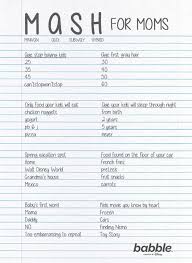 MASH FOR MOMS
MINIVAN COOL SUBWAY HYBRID
Age: stop having kids
25
35
45
can't/stop/won't/stop
Age: first gray hair
30
40
50
60
Only food your kids will eat
chicken nuggets
yogurt
pb & j
pizza
Age your kids will sleep through night
from birth
2
5
never
Spring vacation spot
home
Disney World
Grandma's house
Mexico
Food found on the floor of your car
french fries
Goldfish
fruit snacks
carrots
Baby's first word
Mama
Daddy
NO
Too embarrassing to repeat
Kids movie you know by heart
Frozen
Cars
Finding Nemo
Toy Story
babble